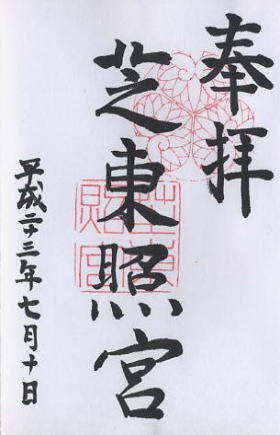 奉拝
芝東照宮
平成二十三年七月十日